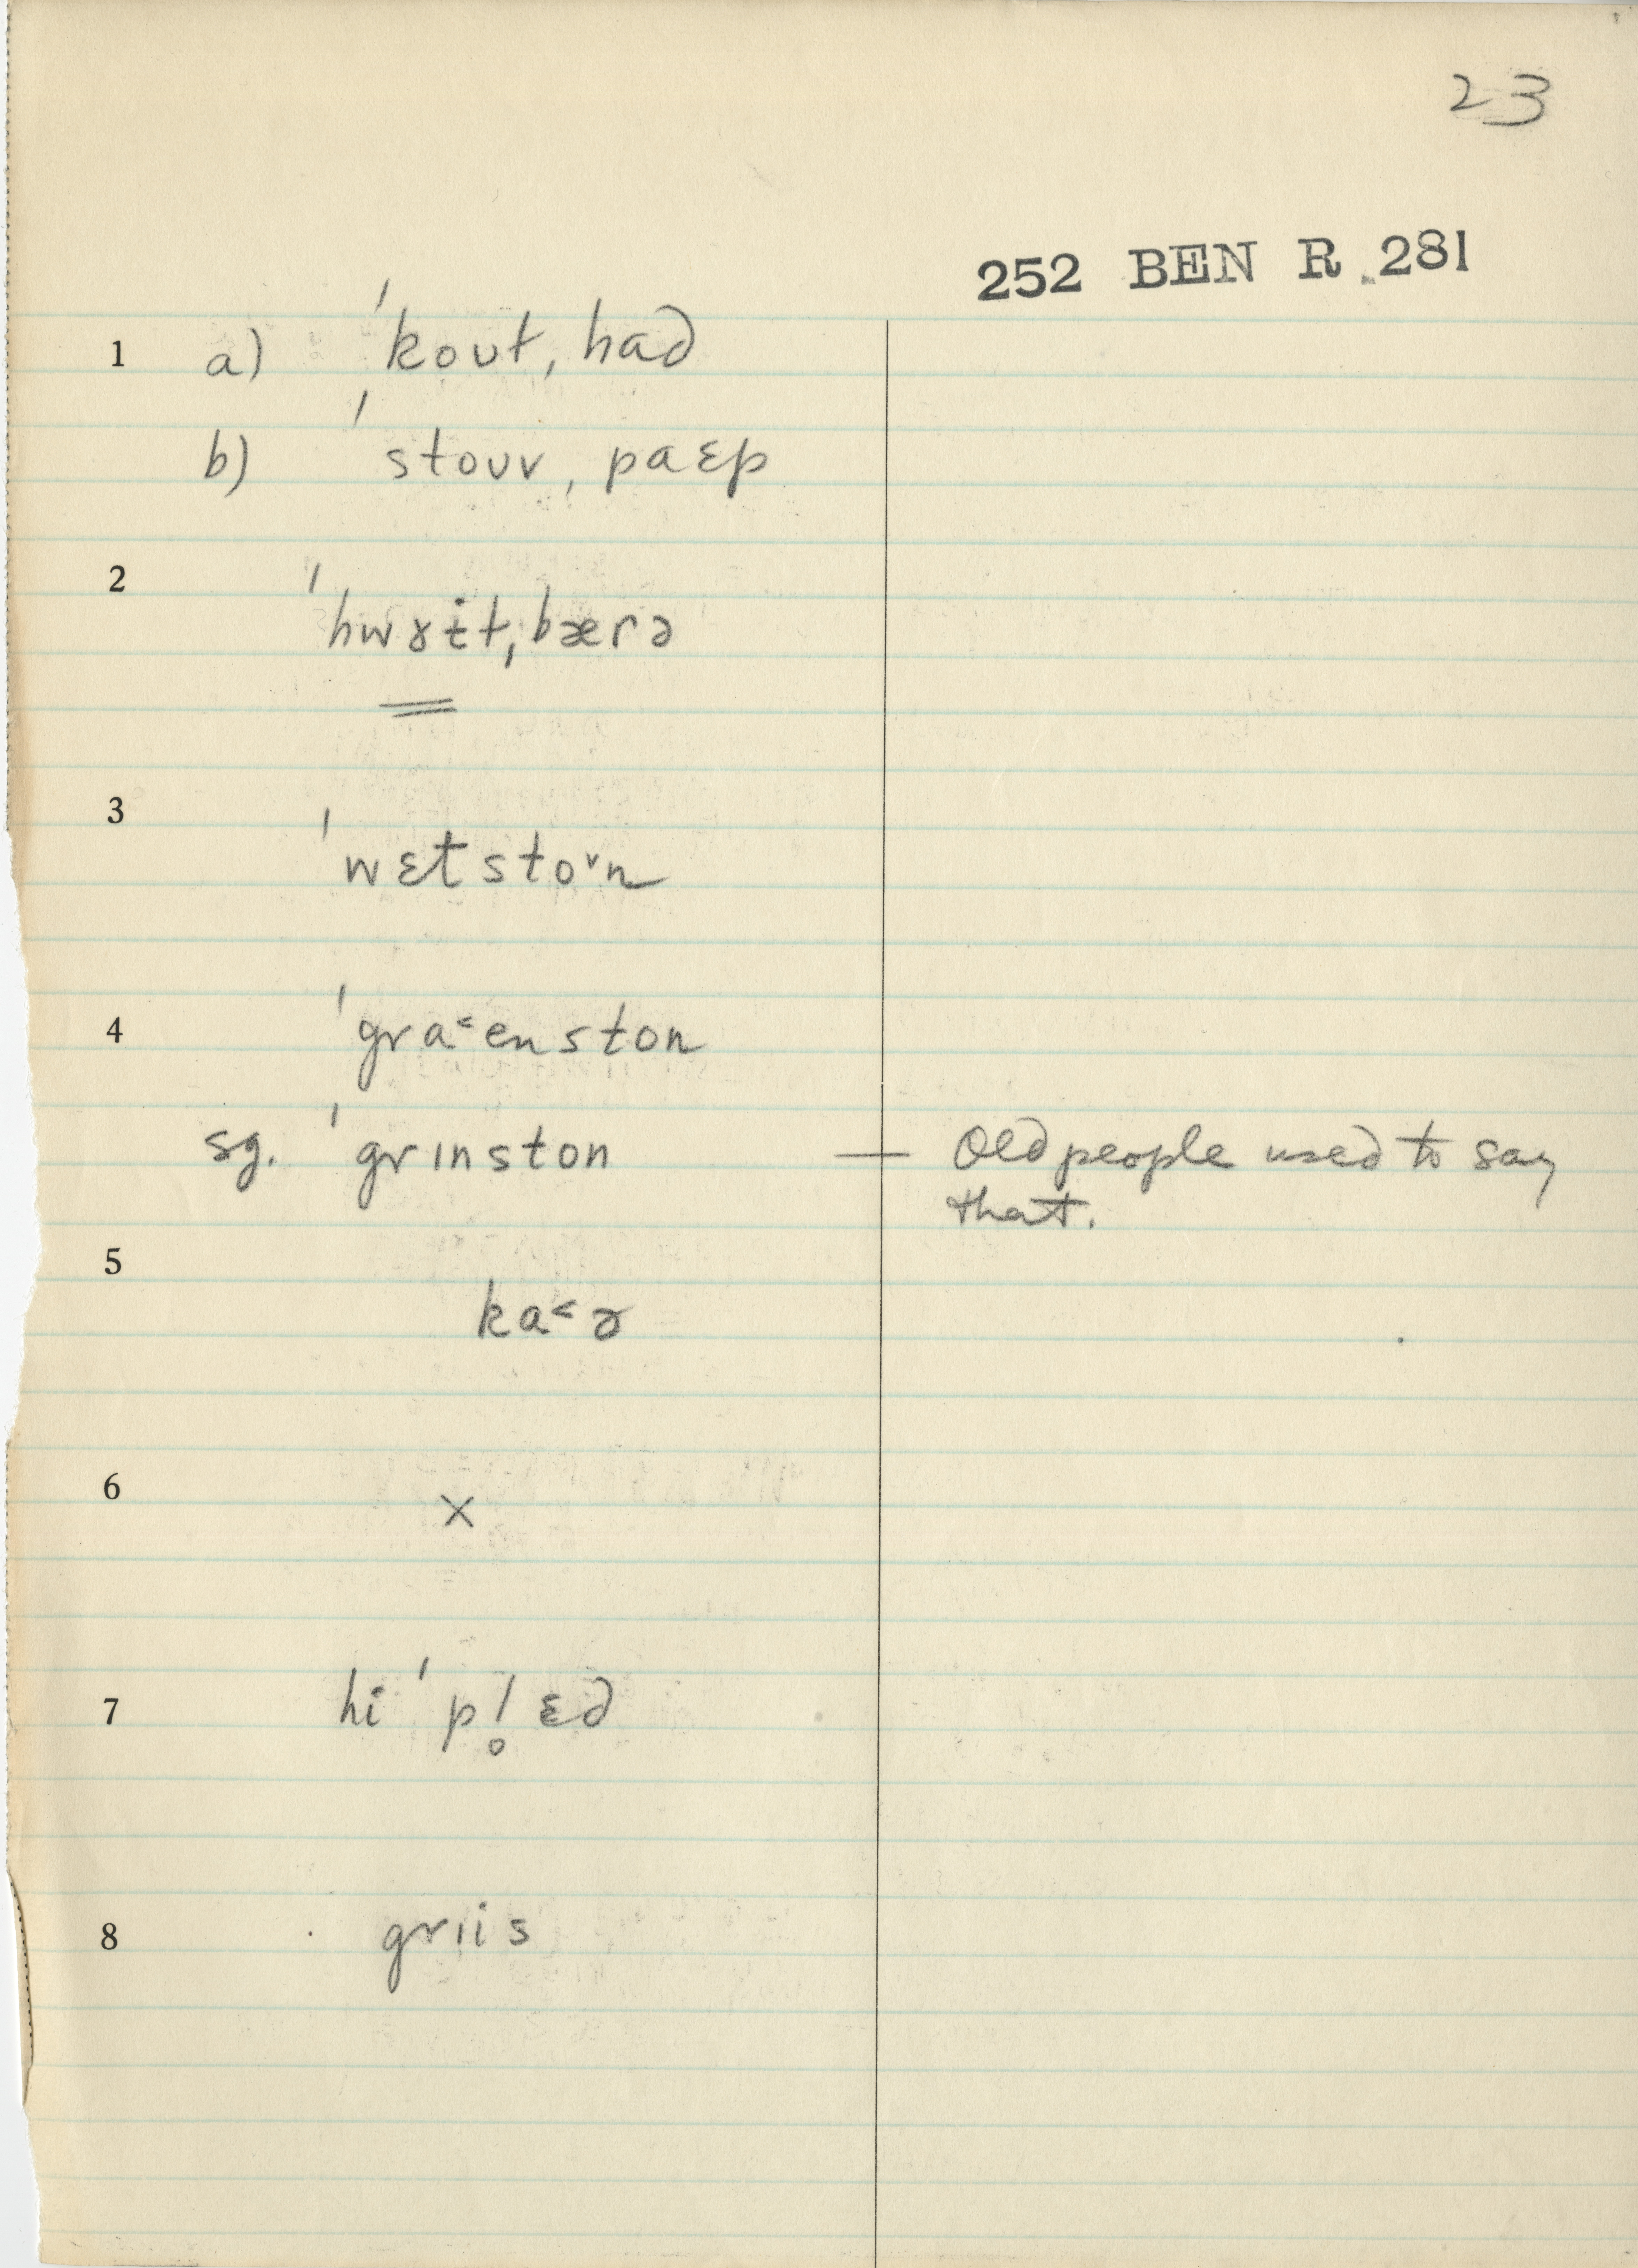 23
252 BEN R 281
1 a) ˈkoʊt, had
b) ˈstoʊv, paɛp
2 ˈhwɤɨt, bærə
3 ˈwɛtstoᵛn
4 ˈgra˂enston
sg. ˈgrɪnston — Old people used to say
that.
5 ka˂ɚ
6 x
7 hi ˈpl̥ɛd
8 grɪis